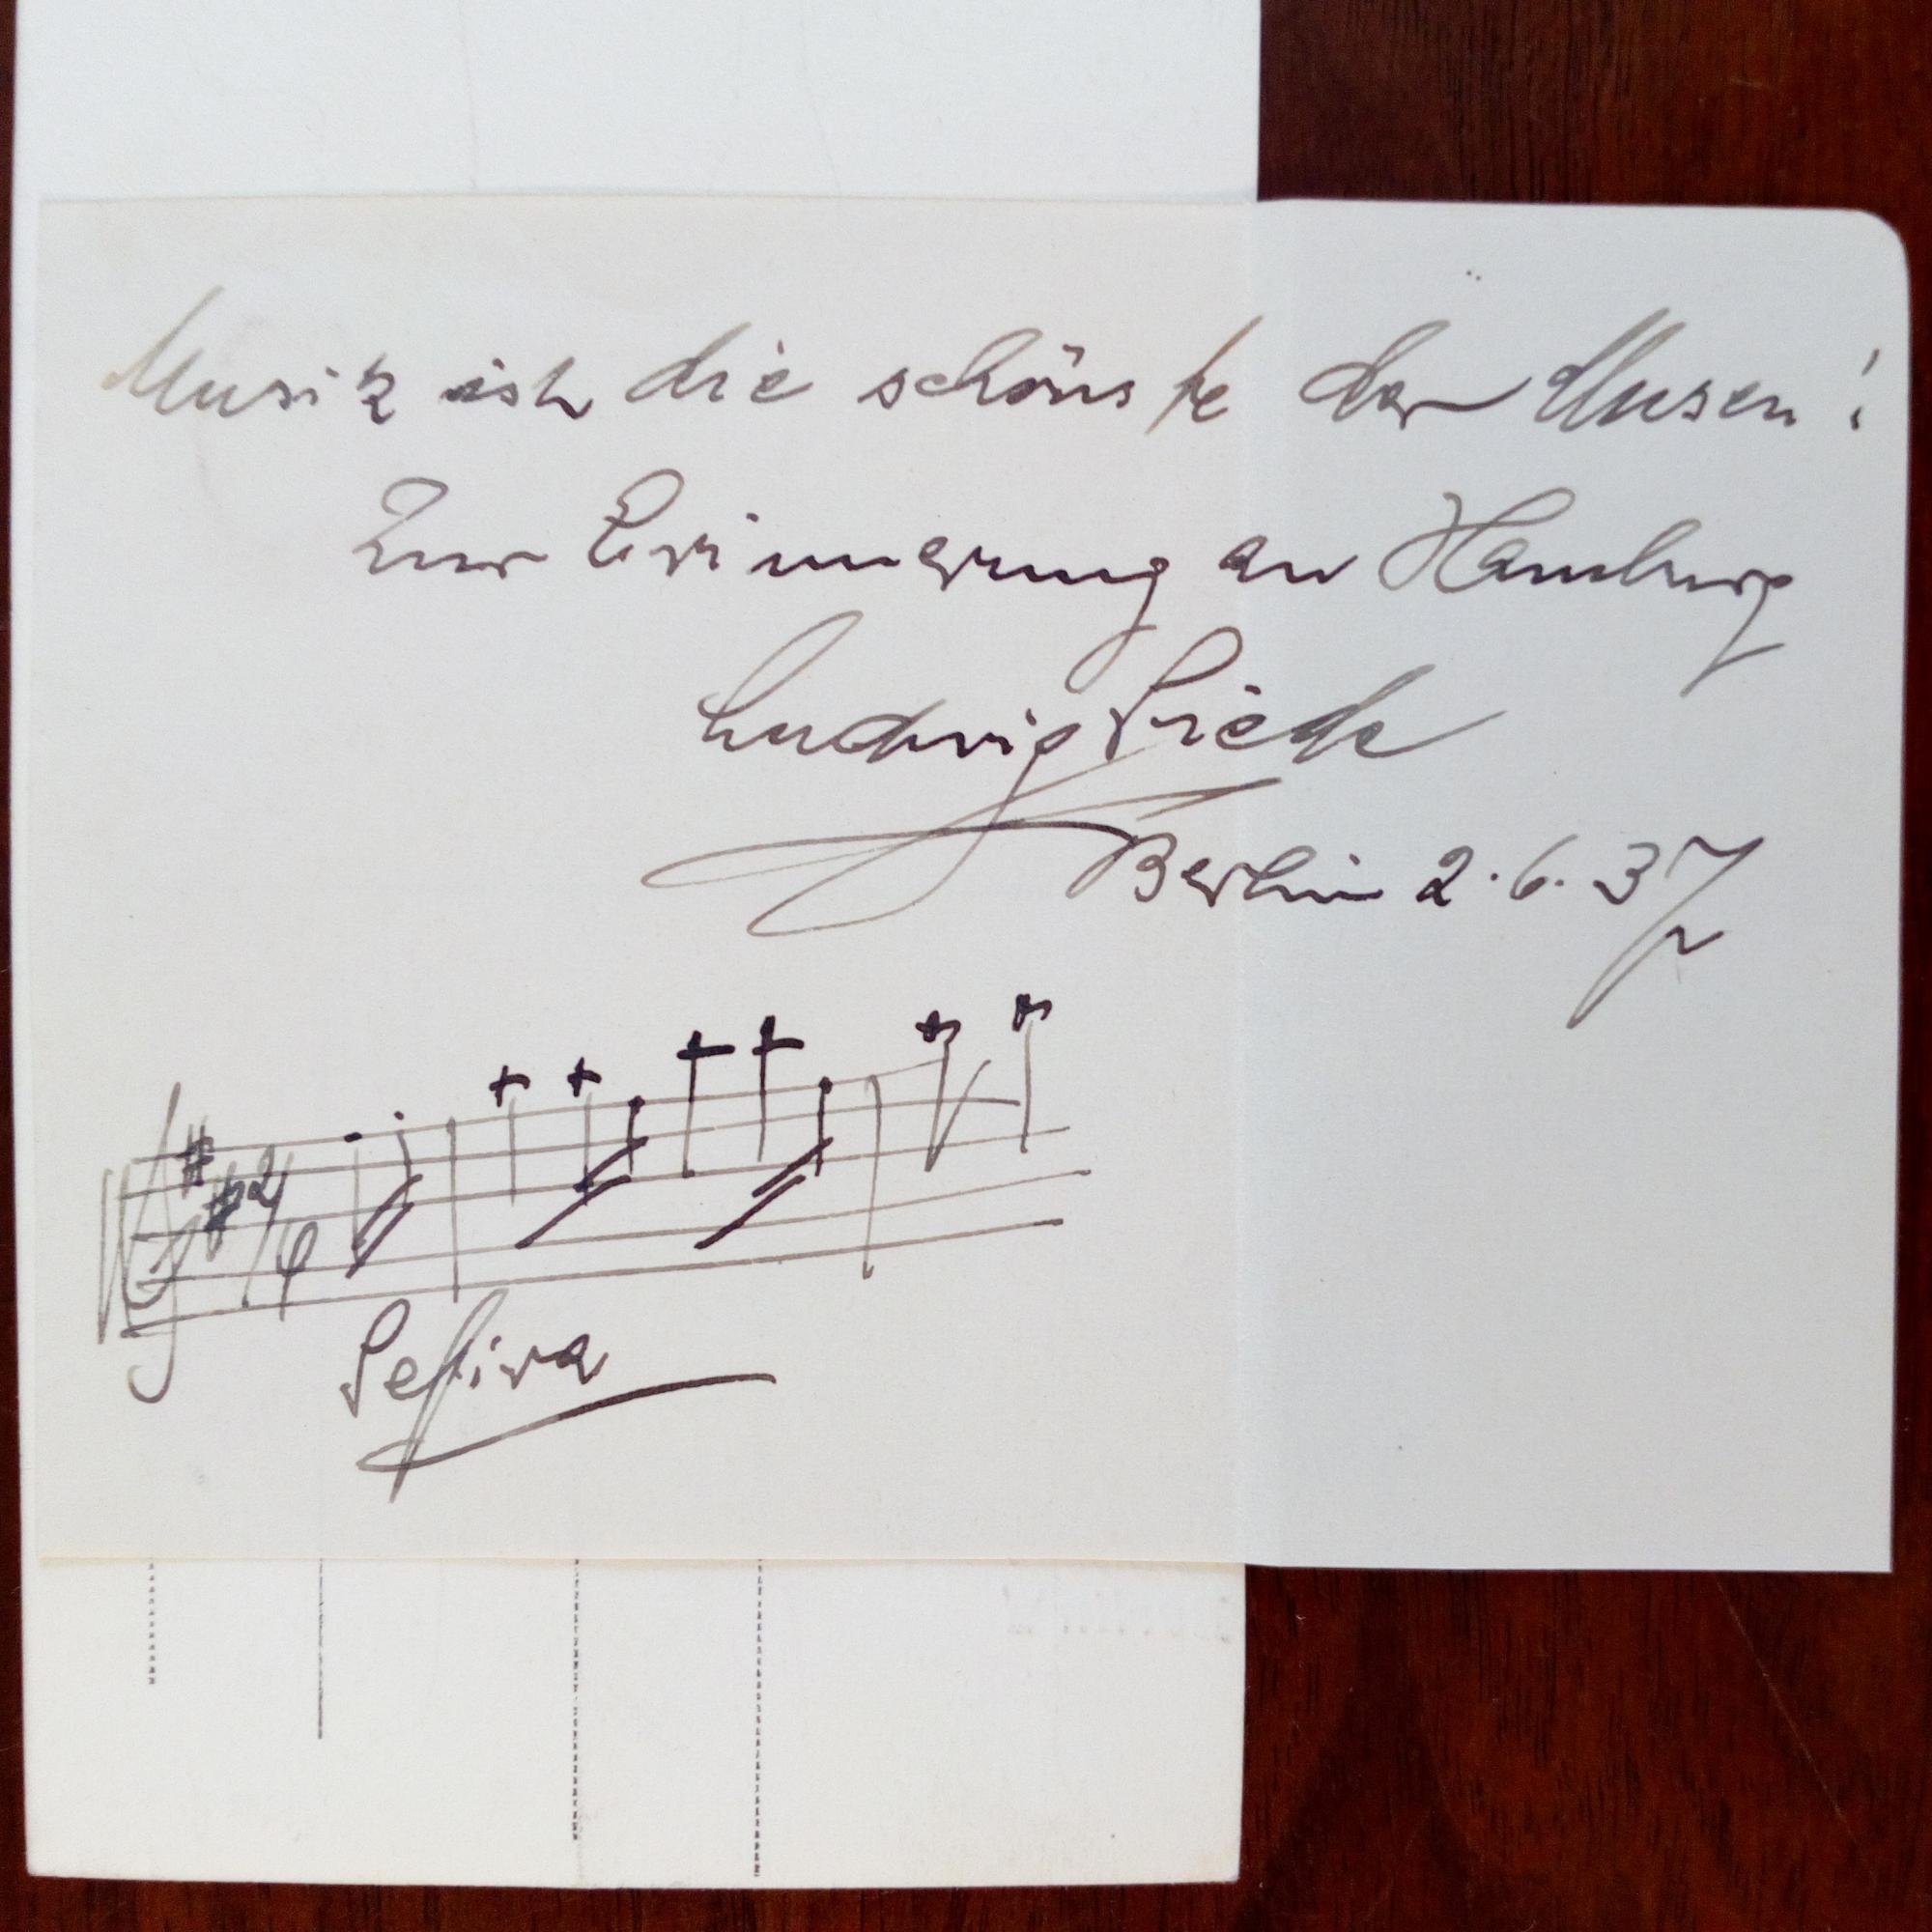 Musik ist die schönste der Musen!
Zur Erinnerung an Hamburg
Ludwig Siede
Berlin 2.6.37
2/4